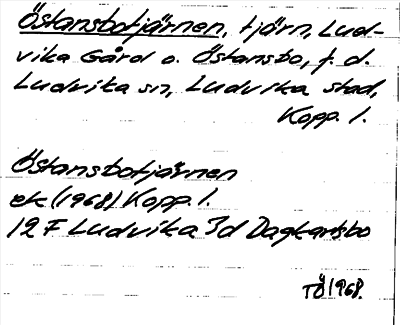 Östansbotjärnen, tjärn, Lud-
vika Gård o. Östansbo, f. d.
Ludvika sn, Ludvika stad,
Kopp. l.
Östansbotjärnen
ek (1968) Kopp. l.
12 F Ludvika 3d Dagkarlsbo
TÖ 1968.